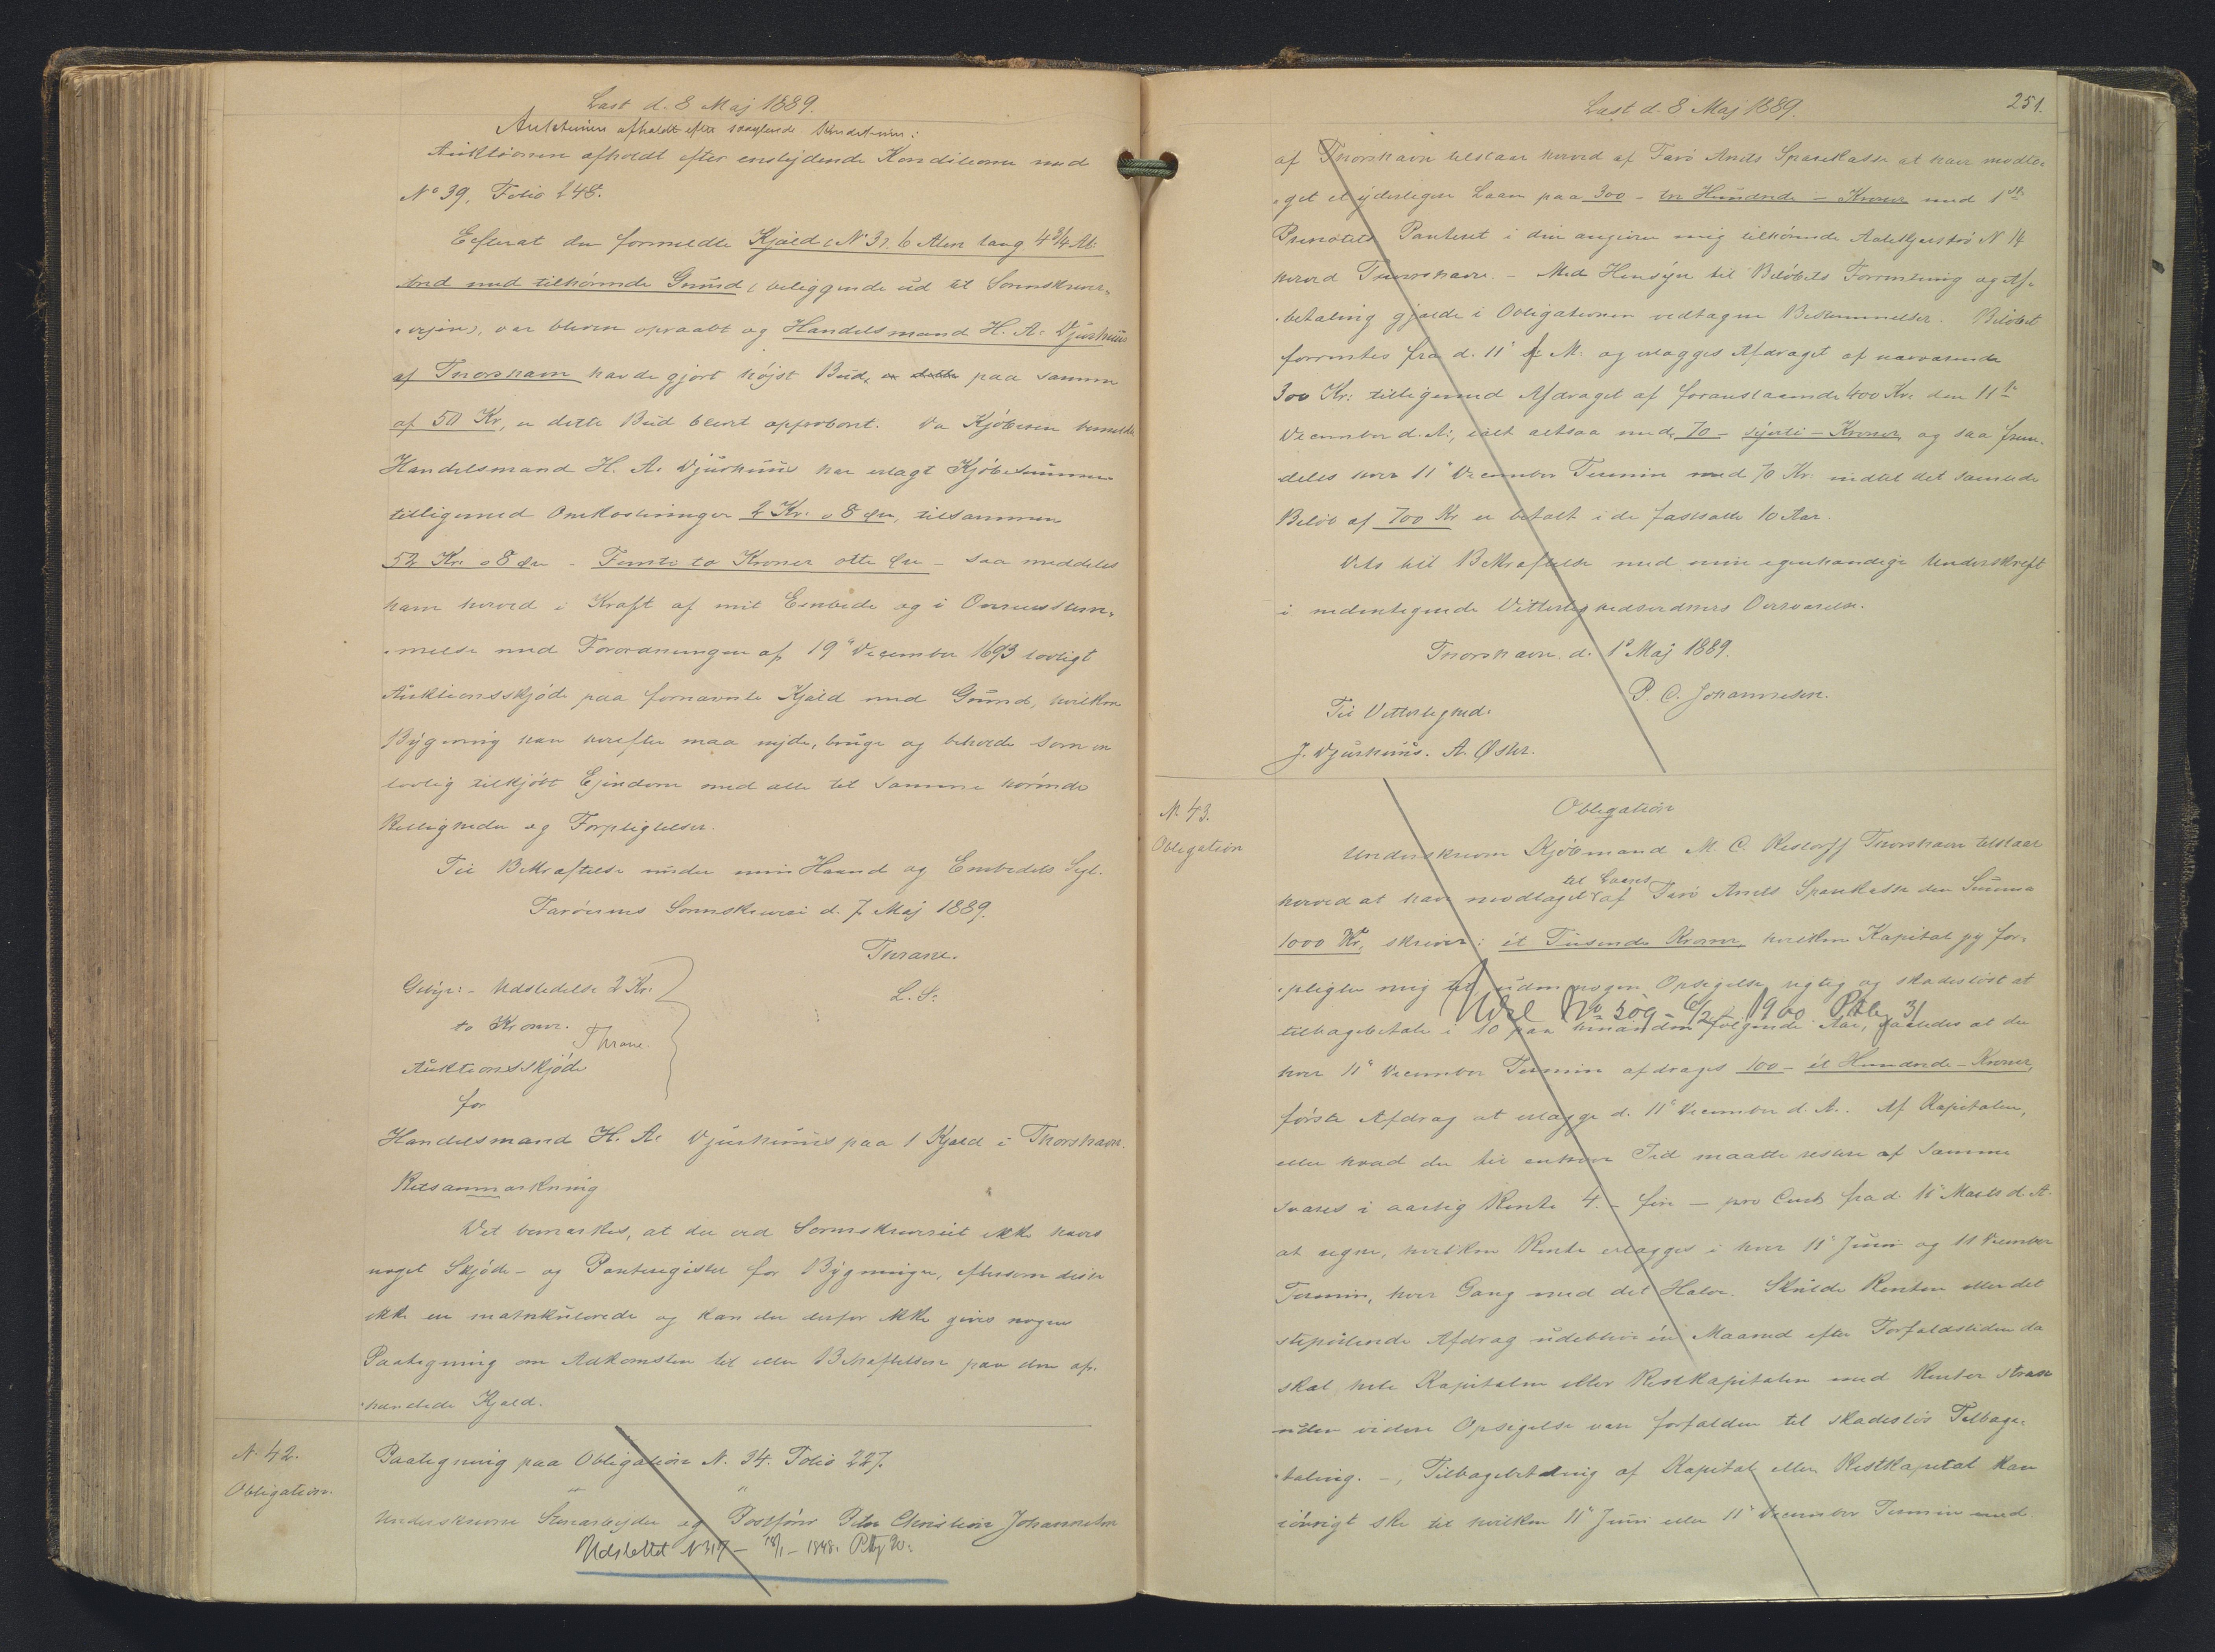 Læst d. 8 Maj 1889.
Auktionen afholdt efter saalydende Konditioner:
Auktionen afholdt efter enslydende Konditioner med
No 39, Folio 248.
Efterat den formeldte Kjæld (N 3), 6 Alen lang 4 3/4 Al:
bred med tilhørende Grund (beliggende ud til Sorenskriver-
vejen), var bleven opraabt og Handelsmand H. A. Djurhuus
af Thorshavn havde gjort højst Bud, paa samme
af 50 Kr, er dette Bud blevet approberet. Da Kjøberen bemeldte
Handelsmand H. A. Djurhuus har erlagt Kjøbesummen
tilligemed Omkostninger 2 Kr. 08 Øre, tilsammen
52 Kr. 08 Øre - Femti to Kroner otte Øre - saa meddeles
ham herved i Kraft af mit Embede og i Overensstem-
melse med Forordningen af 19de December 1693 lovligt
Auktionsskjøde paa fornævnte Kjæld med Grund, hvilken
Bygning han herefter maa nyde, bruge og beholde som en
lovlig tilkjøbt Ejendom med alle til samme hørende
Rettigheder og Forpligtelser.
Til Bekræftelse under min Haand og Embedets Segl.
Færøernes Sorenskriveri d. 7 Maj 1889.
Thrane.
Gebyr: - Udstedelse 2 Kr.
L. S.
to Kroner.
Thrane.
Auktionsskjøde
for
Handelsmand H. A. Djurhuus paa 1 Kjæld i Thorshavn.
Retsanmærkning
Det bemærkes, at der ved Sorenskriveriet ikke haves
noget Skjøde- og Panteregister for Bygninger, eftersom disse
ikke ere matrikulerede og kan der derfor ikke gives nogen
Paategning om Adkomsten til eller Behæftelser paa den af-
handlede Kjæld.
N. 42.
Obligation.
Paategning paa Obligation N. 34. Folio 227.
Underskrevne Stenarbejder og Postfører Peter Christian Johannesen
Udslettet N 317 - 18/1 - 1898. Ptg 20.
Læst d. 8 Maj 1889.
251.
af Thorshavn tilstaar herved af Færø Amts Sparekasse at have modta-
get et yderligere Laan paa 300 - tre Hundrede - Kroner med 1ste
Prioritets Panteret i den angivne mig tilhørende Aabekjærstrø N 14
herved Thorshavn. - Med Hensyn til Beløbets Forrentning og Af-
betaling gjælde i Obligationen vedtagne Bestemmelser. Beløbet
forrentes fra d. 11te f. M. og erlægges Afdraget af nærværende
300 Kr. tilligemed Afdraget af foranstaaende 400 Kr. den 11te
December d. A., ialt altsaa med 70 - syvti - Kroner og saa frem-
deles hver 11te December Termin med 70 Kr. indtil det samlede
Beløb af 700 Kr er betalt i de fastsatte 10 Aar.
Dets til Bekræftelse med min egenhændige Underskrift
i nedentegnede Vitterlighedsvidners Overværelse.
Thorshavn d. 1ste Maj 1889.
P. C. Johannesen.
Til Vitterlighed:
J. Djurhuus. A. Øster.
N. 43.
Obligation
Obligation
Underskrevne Kjøbmand M. C. Restorff Thorshavn tilstaar
herved at have modtaget til Laans af Færø Amts Sparekasse den Summa
1000 Kr, skriver: ét Tusende Kroner, hvilken Kapital jeg for-
pligter mig til, uden nogen Opsigelse rigtig og skadesløst at
Udsl No 509 - 6/2 - 1900 Ptg 31
tilbagebetale i 10 paa hinanden følgende Aar, saaledes at der
hver 11te December Termin afdrages 100 - ét Hundrede - Kroner,
første Afdrag at erlægge d. 11te December d. A. Af Kapitalen,
eller hvad der til enhver Tid maatte restere af samme
svares i aarlig Rente 4. - fire - pro Cent fra d. 11te Marts d. A.
at regne, hvilken Rente erlægges i hver 11te Juni og 11 December
Termin, hver Gang med det Halve. Skulde Renten eller det
stipulerede Afdrag udeblive én Maaned efter Forfaldstiden da
skal hele Kapitalen eller Restkapitalen med Renter strax
uden videre Opsigelse være forfalden til skadesløs Tilbage-
taling. -, Tilbagebetaling af Kapital eller Restkapital kan
iøvrigt ske til hvilken 11te Juni eller 11te December Termin med